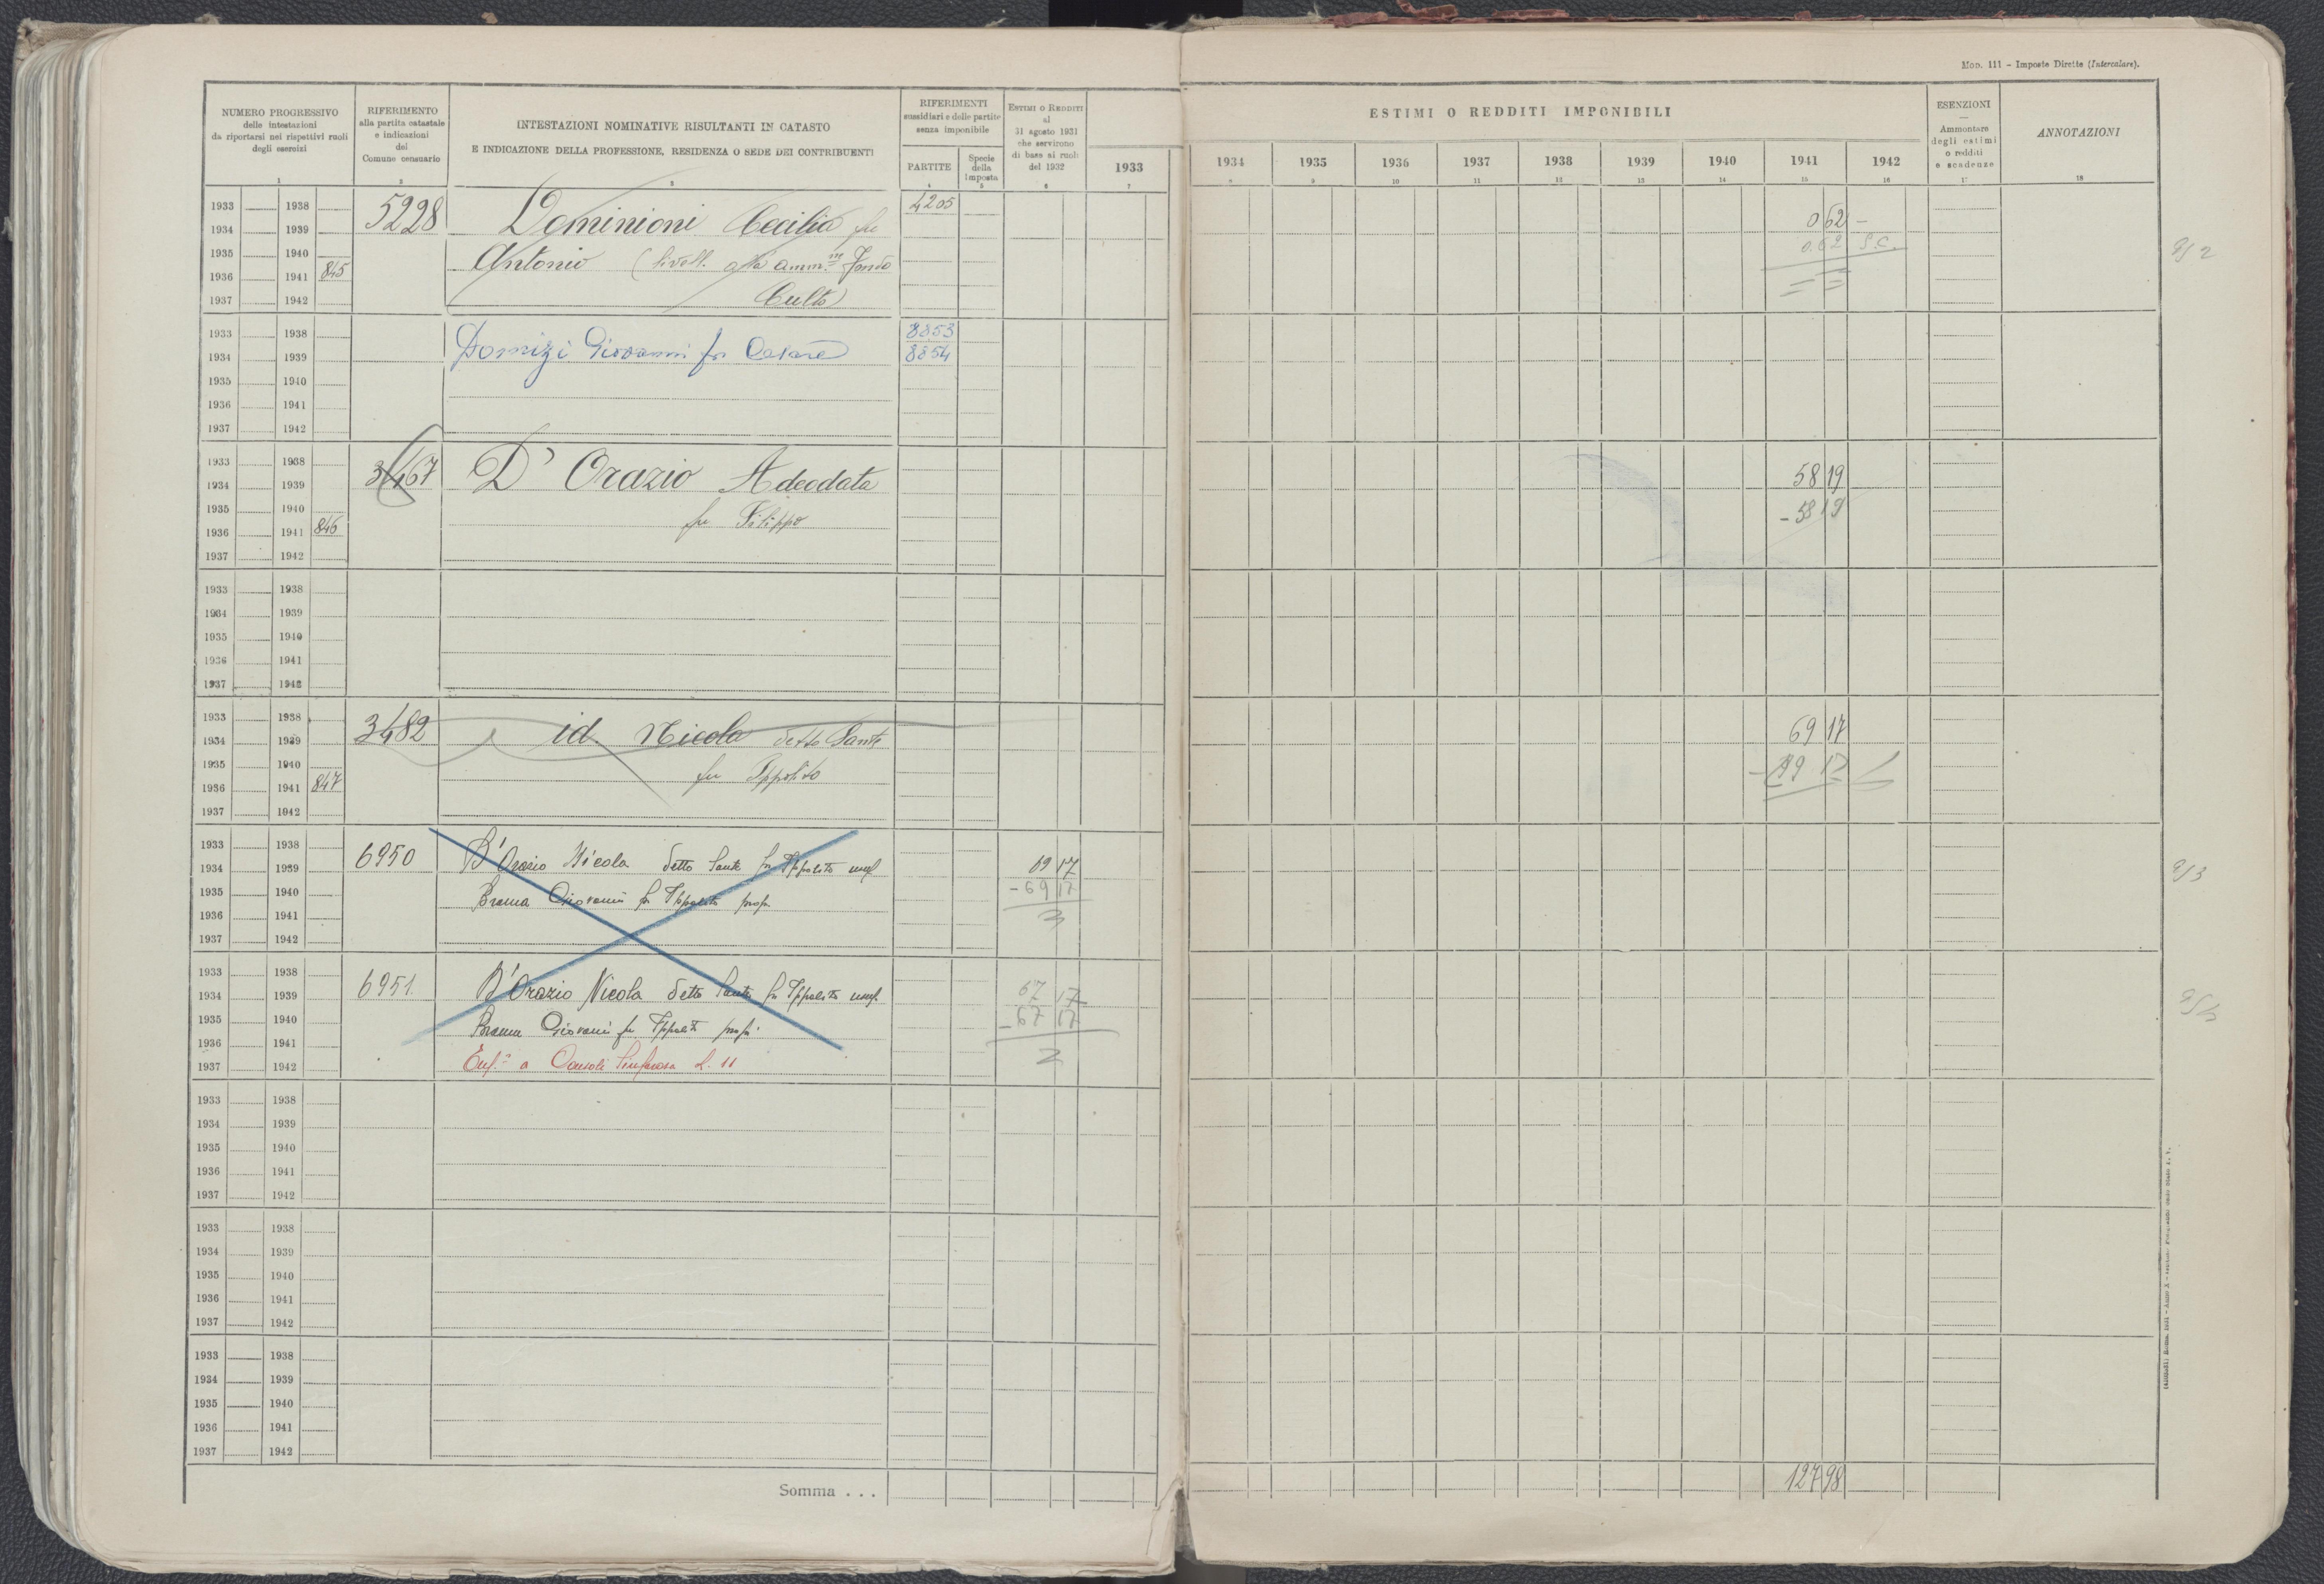 Mod. 111 – Imposte Dirette (Intercalare).
NUMERO PROGRESSIVO
delle intestazioni
da riportarsi nei rispettivi ruoli
degli esercizi
1
RIFERIMENTO
alla partita catastale
e indicazioni
del
Comune censuario
2
INTESTAZIONI NOMINATIVE RISULTANTI IN CATASTO
E INDICAZIONE DELLA PROFESSIONE, RESIDENZA O SEDE DEI CONTRIBUENTI
3
RIFERIMENTI
sussidiari e delle partite
senza imponibile
PARTITE
4
Specie
della
Imposta
5
ESTIMI O REDDITI
al
31 agosto 1931
che servirono
di base ai ruoli
del 1932
6
ESTIMI O REDDITI IMPONIBILI
1933 1934 1935 1936 1937 1938 1939 1940 1941 1942
7 8 9 10 11 12 13 14 15 16
ESENZIONI
Ammontare
degli estimi
o redditi
e scadenze
17
ANNOTAZIONI
18
1933 1938 5228 Dominioni Cecilia fu 4205 0 62 –
1934 1939
1935 1940 Antonio (livell. alla amm.ne Fondo 0.62 S.C. 9/2
1936 1941 845
1937 1942 Culto)
1933 1938 8853
1934 1939 Domizi Giovanni fu Cesare 8854
1935 1940
1936 1941
1937 1942
1933 1938
1934 1939 3467 D'Orazio Adeodata 58 19
1935 1940 fu Filippo – 58 19
1936 1941 846
1937 1942
1933 1938
1934 1939
1935 1940
1936 1941
1937 1942
1933 1938
1934 1939 3482 id. Nicola detto Sante 69 17
1935 1940 fu Ippolito
1936 1941 847
1937 1942
1933 1938
1934 1939 6950 D'Orazio Nicola detto Sante fu Ippolito usuf. 69 17 9/3
1935 1940 – 69 17
1936 1941 Giovanni fu Ippolito prop.
1937 1942
1933 1938
1934 1939 6951 D'Orazio Nicola detto Sante fu Ippolito usuf. 67 17
1935 1940 Giovanni fu Ippolito prop. – 67 17
1936 1941
1937 1942 Enf.a a Consoli Sinforosa L. 11
1933 1938
1934 1939
1935 1940
1936 1941
1937 1942
1933 1938
1934 1939
1935 1940
1936 1941
1937 1942
1933 1938
1934 1939
1935 1940
1936 1941
1937 1942
Somma . . . 127 98